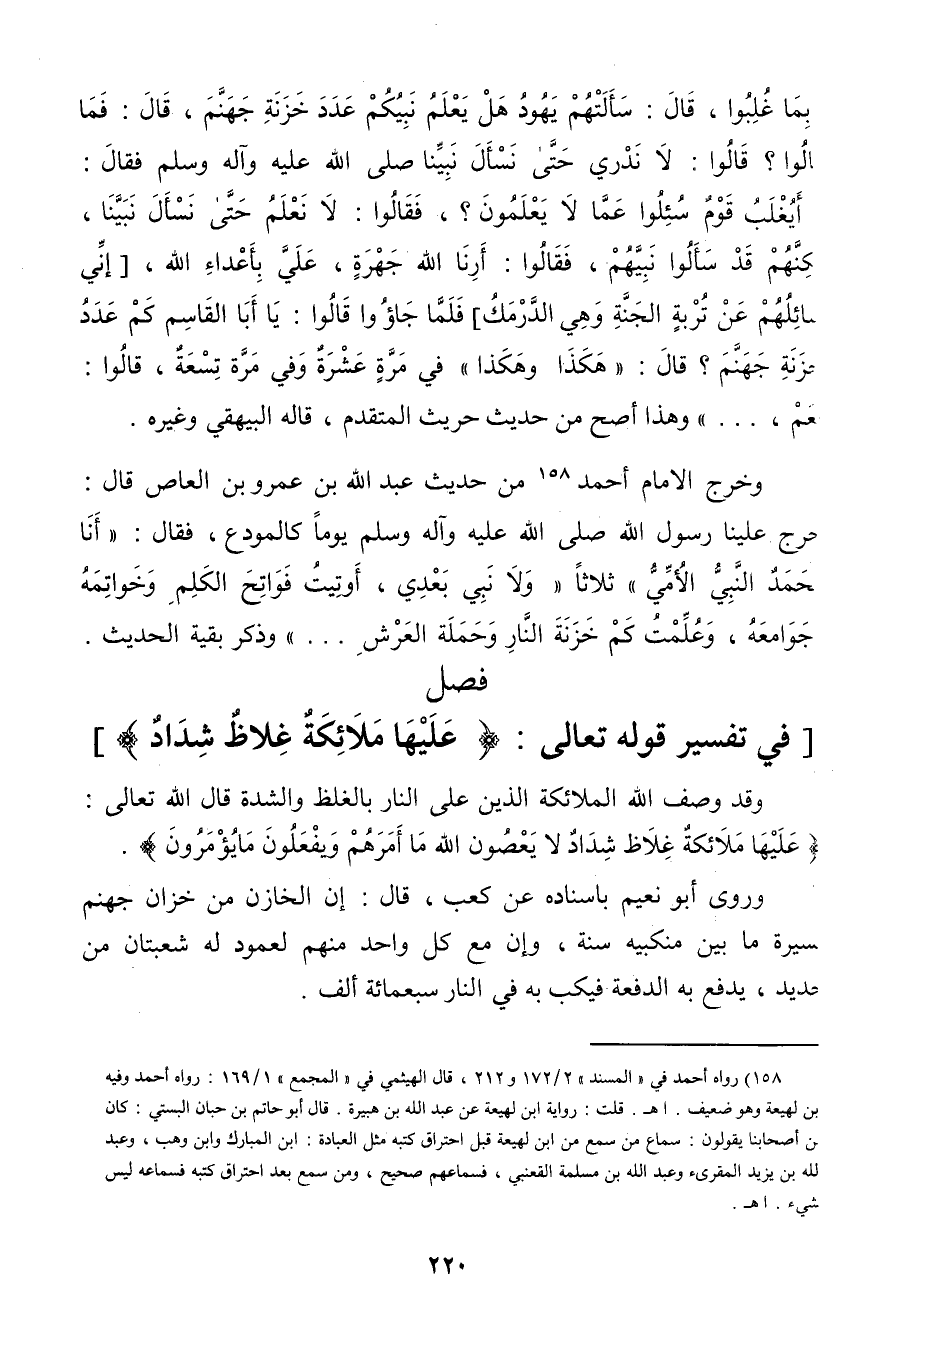 بِمَا غُلِبُوا ، قَالَ : سَأَلَتْهُمْ يَهُودُ هَلْ يَعْلَمُ نَبِيُكُمْ عَدَدَ خَزَنَةِ جَهَنَّمَ ، قَالَ : فَمَا
الُوا ؟ قَالُوا : لَا نَدْرِي حَتَّىٰ نَسْأَلَ نَبِيِّنا صلى الله عليه وآله وسلم فقالَ :
أَيُغْلَبُ قَوْمٌ سُئِلُوا عَمَّا لَا يَعْلَمُونَ ؟ ، فَقَالُوا : لَا نَعْلَمُ حَتَّىٰ نَسْأَلَ نَبَيَّنَا ،
كِنَّهُمْ قَدْ سَأَلُوا نَبِيَّهُمْ ، فَقَالُوا : أَرِنَا الله جَهْرَةٍ ، عَلَيَّ بِأَعْداءِ الله ، [ إنِّي
ـائِلُهُمْ عَنْ تُرْبةِ الجَنَّةِ وَهِي الدَّرْمَكُ] فَلَمَّا جَاؤُوا قَالُوا : يَا أَبَا القَاسِم كَمْ عَدَدُ
ـزَنَةِ جَهَنَّمَ ؟ قالَ : « هَكَذَا وهَكَذا » في مَرَّةٍ عَشْرَةٌ وَفي مَرَّة تِسْعَةٌ ، قالُوا :
ـعَمْ ، . . . » وهذا أصح من حديث حريث المتقدم ، قاله البيهقي وغيره .
وخرج الامام أحمد ١٥٨ من حديث عبد الله بن عمرو بن العاص قال :
ـرج علينا رسول الله صلى الله عليه وآله وسلم يوماً كالمودع ، فقال : « أَنَا
ـحَمَدٌ النَّبِيُّ الْأُمِّيُّ » ثلاثاً « وَلَا نَبِي بَعْدِي ، أُوتِيتُ فَوَاتِحَ الكَلِمِ وَخَواتِمَهُ
جَوَامعَهُ ، وَعُلِّمْتُ كَمْ خَزَنَةَ النَّارِ وَحَمَلَة العَرْشِ . . . » وذكر بقية الحديث .
فصل
[ في تفسير قوله تعالى : ﴿ عَلَيْهَا مَلَائِكَةٌ غِلاظٌ شِدَادٌ ﴾ ]
وقد وصف الله الملائكة الذين على النار بالغلظ والشدة قال الله تعالى :
﴿ عَلَيْهَا مَلَائكةٌ غِلَاظ شِدَادٌ لا يَعْصُون الله مَا أَمَرَهُمْ وَيَفْعَلُونَ مَايُؤْمَرُونَ ﴾ .
وروى أبو نعيم باسناده عن كعب ، قال : إن الخازن من خزان جهنم
سيرة ما بين منكبيه سنة ، وإن مع كل واحد منهم لعمود له شعبتان من
ـديد ، يدفع به الدفعة فيكب به في النار سبعمائة ألف .
١٥٨) رواه أحمد في « المسند » ١٧٢/٢ و٢١٢ ، قال الهيثمي في « المجمع » ١٦٩/١ : رواه أحمد وفيه
بن لهيعة وهو ضعيف . ا هـ . قلت : رواية ابن لهيعة عن عبد الله بن هبيرة . قال أبو حاتم بن حبان البستي : كان
ـن أصحابنا يقولون : سماع من سمع من ابن لهيعة قبل احتراق كتبه مثل العبادة : ابن المبارك وابن وهب ، وعبد
لله بن يزيد المقرىء وعبد الله بن مسلمة القعنبي ، فسماعهم صحيح ، ومن سمع بعد احتراق كتبه فسماعه ليس
شيء . ا هـ .
٢٢٠